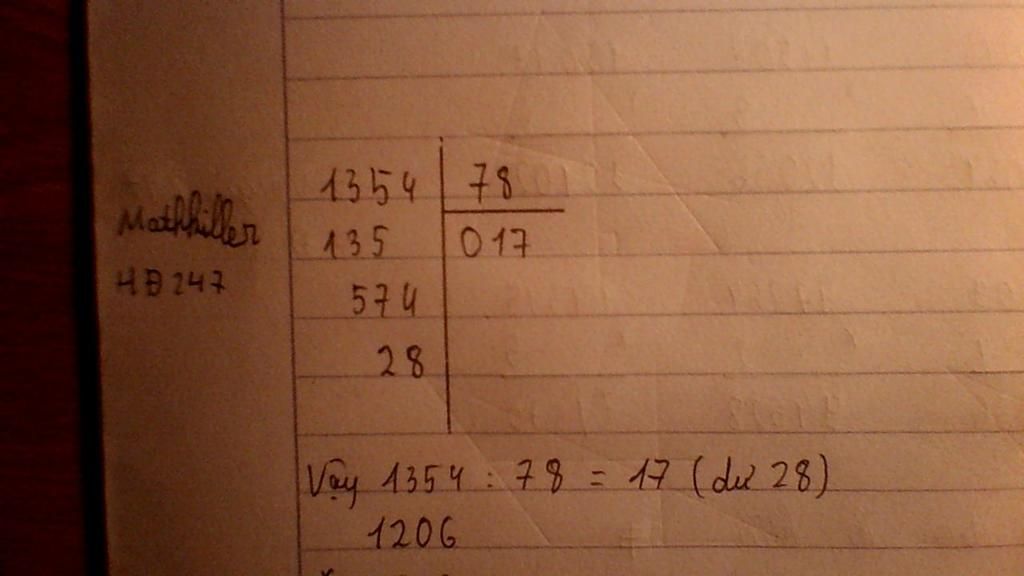 Mathhiller
HD247
1354 78
135 017
574
28
Vậy 1354 : 78 = 17 (dư 28)
1206